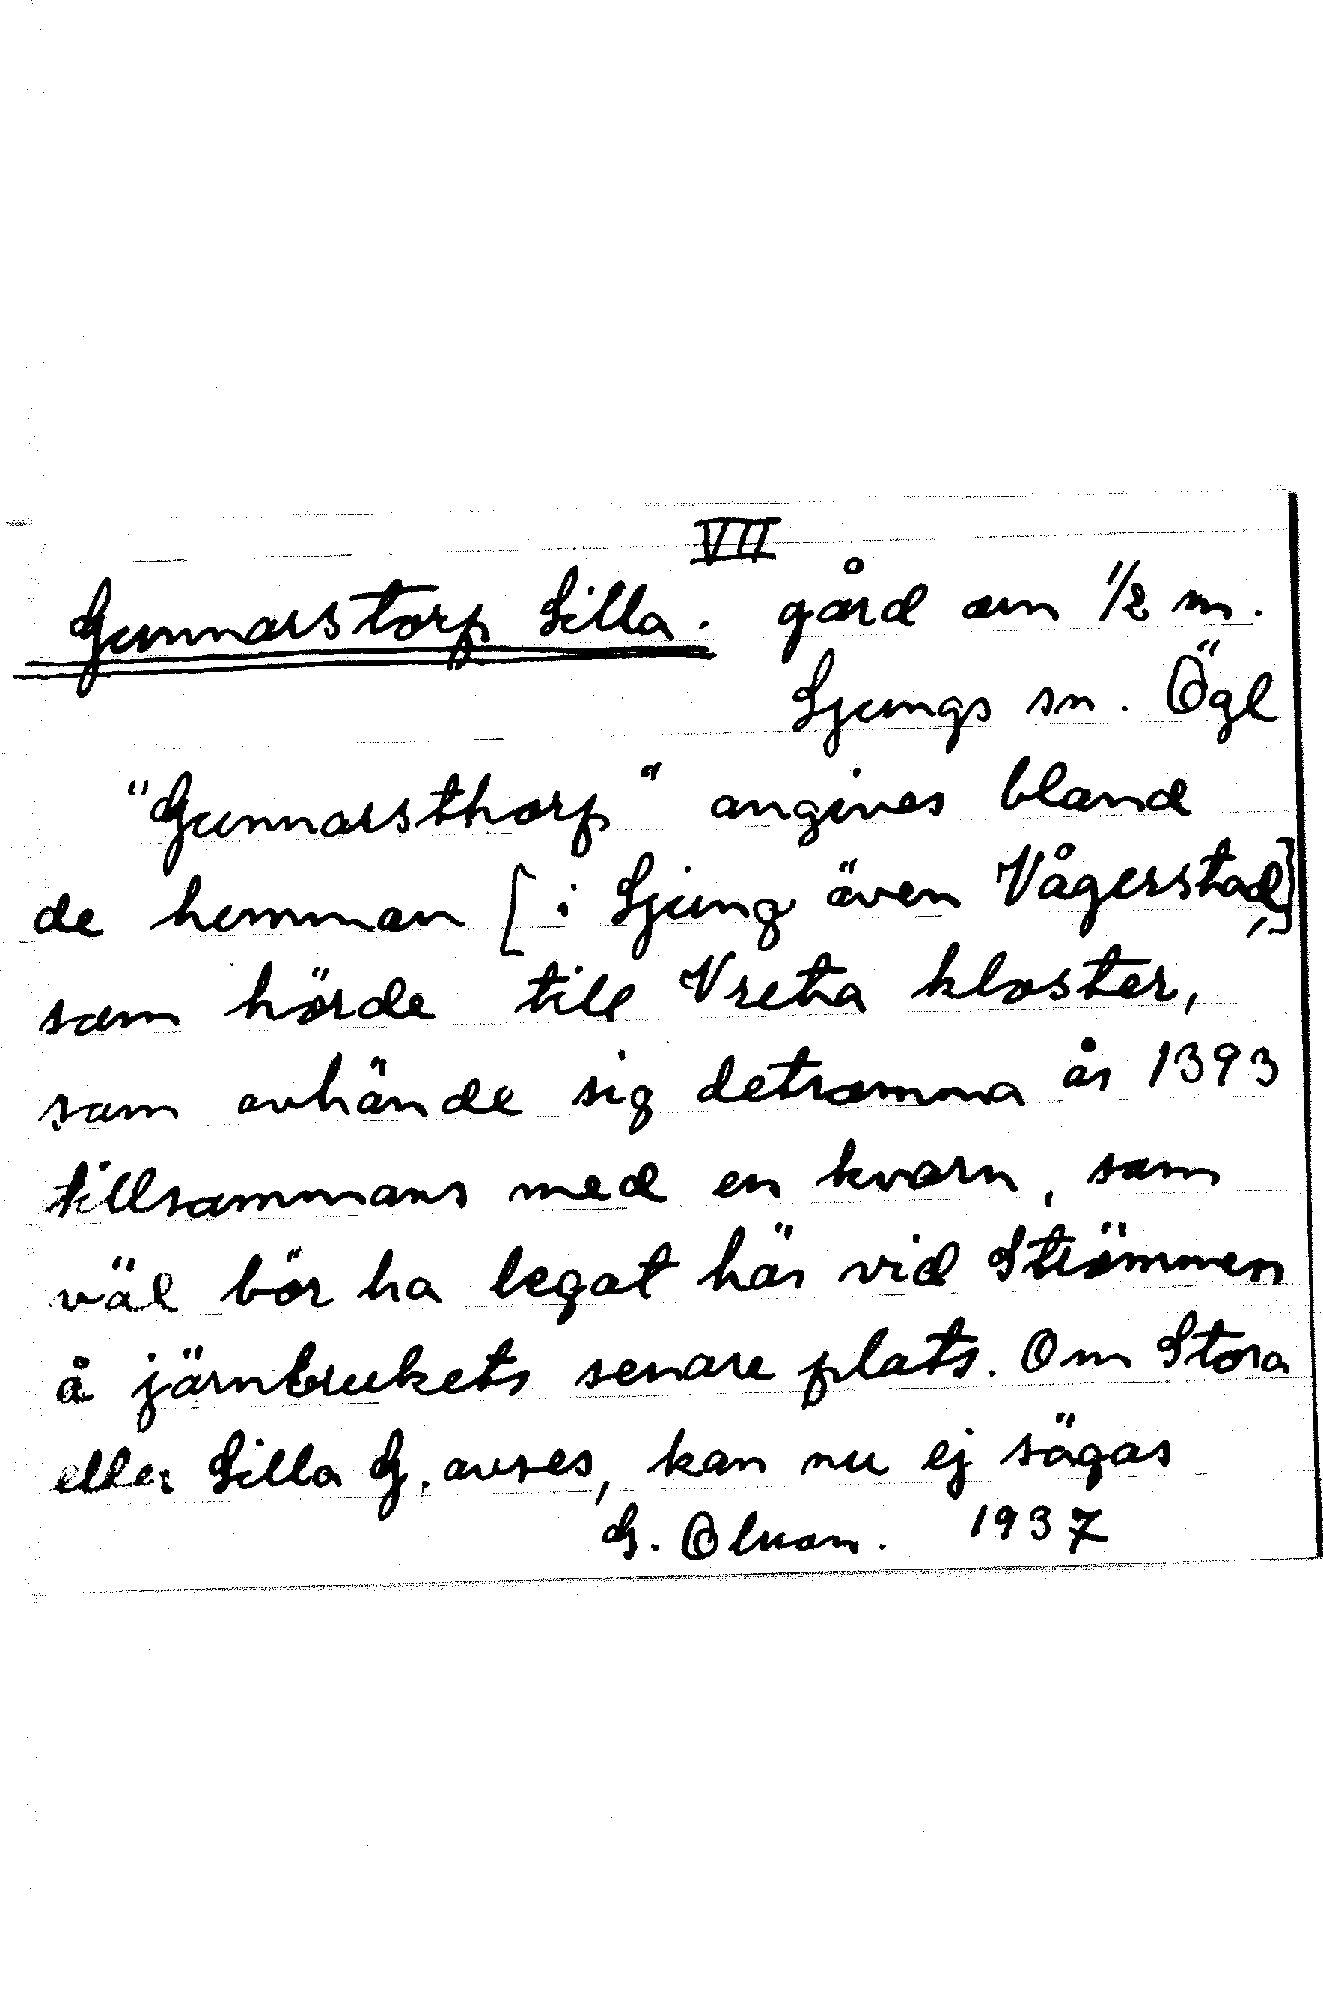 VII
Gunnarstorp Lilla. gård om 1/2 m.
Ljungs sn. Ögl
"Gunnarsthorp" angives bland
de hemman [i Ljung även Vågerstad,]
som hörde till Vreta kloster,
som avhände sig detsamma år 1393
tillsammans med en kvarn, som
väl bör ha legat här vid Strömmen
å järnbrukets senare plats. Om Stora
eller Lilla G. avses, kan nu ej sägas
G. 1937